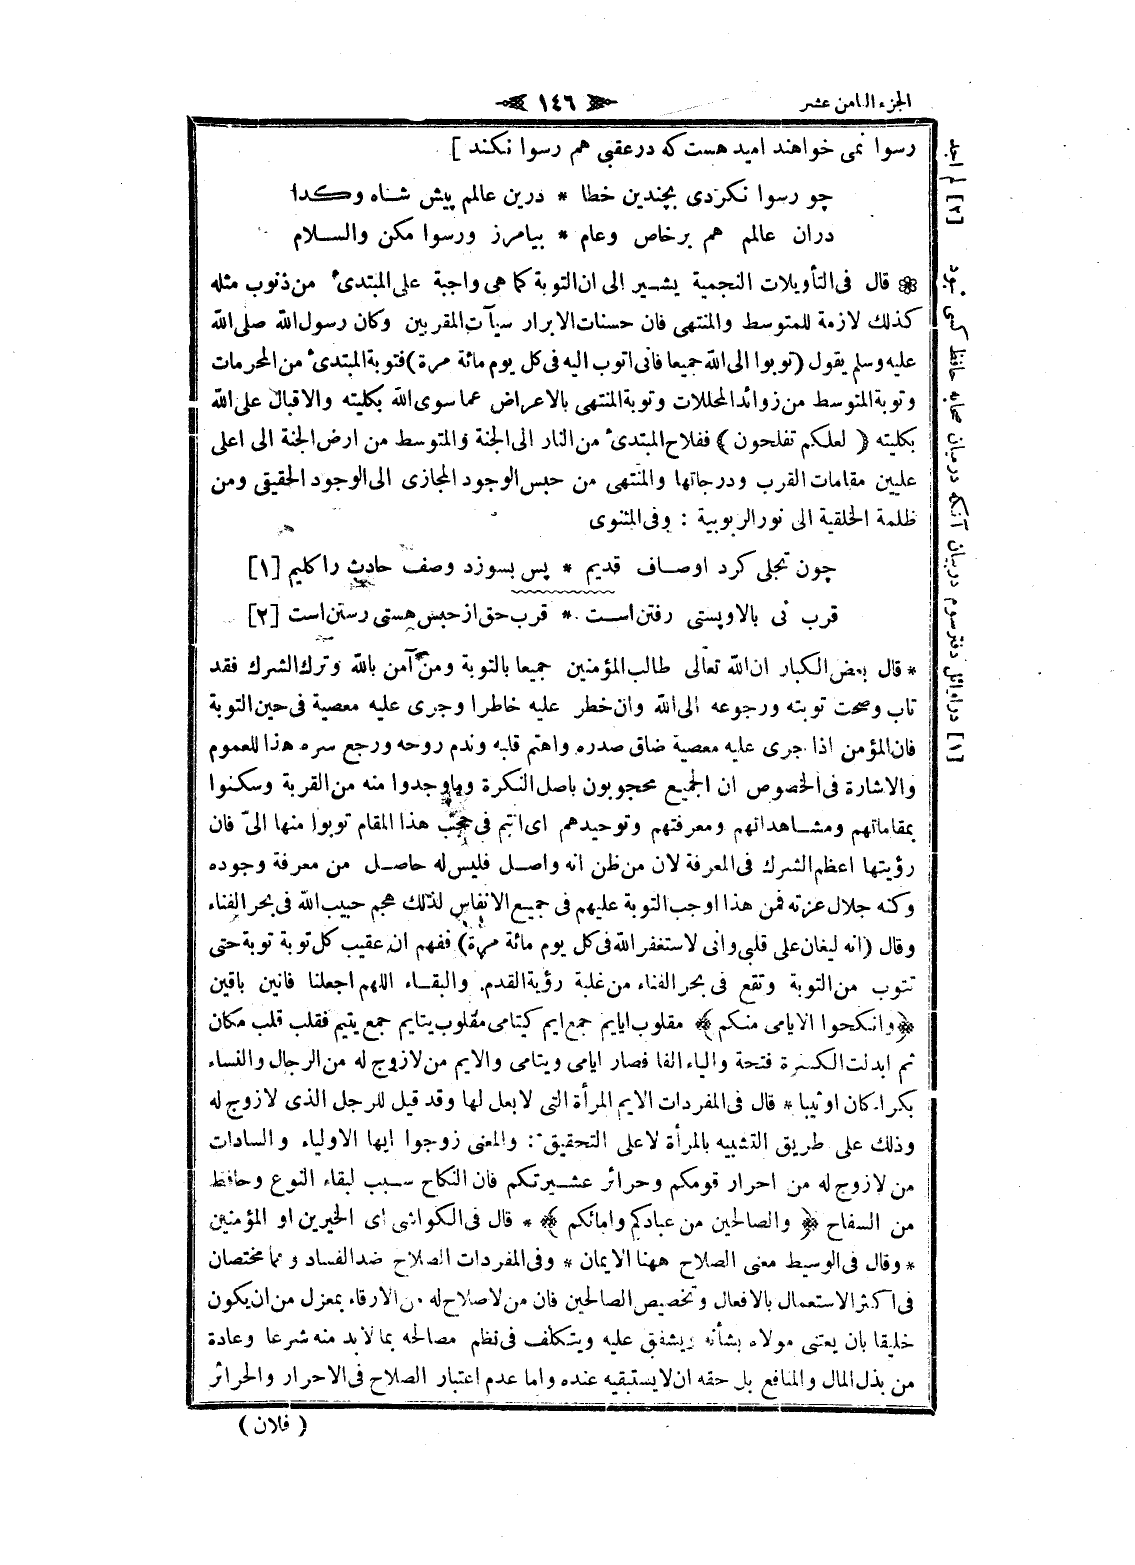 الجزء الثامن عشر
١٤٦
رسوا نمى خواهند اميد هست كه در عقبى هم رسوا نكند ]
چو رسوا نكردى بچندين خطا * درين عالم پيش شاه وكدا
دران عالم هم بر خاص وعام * بيامرز ورسوا مكن والسلام
قال فى التأويلات النجمية يشير الى ان التوبة كما هى واجبة على المبتدئ من ذنوب مثله
كذلك لازمة للمتوسط والمنتهى فان حسنات الابرار سيآت المقربين وكان رسول الله صلى الله
عليه وسلم يقول (توبوا الى الله جميعا فانى اتوب اليه فى كل يوم مائة مرة) فتوبة المبتدئ من المحرمات
وتوبة المتوسط من زوائد المحللات وتوبة المنتهى بالاعراض عما سوى الله بكليته والاقبال على الله
بكليته ﴿ لعلكم تفلحون ﴾ ففلاح المبتدئ من النار الى الجنة والمتوسط من ارض الجنة الى اعلى
عليين مقامات القرب ودرجاتها والمنتهى من حبس الوجود المجازى الى الوجود الحقيقى ومن
ظلمة الخلقية الى نور الربوبية : وفى المثنوى
چون تجلى كرد اوصاف قديم * پس بسوزد وصف حادث را كليم [١]
قرب نى بالا وپستى رفتن است * قرب حق از حبس هستى رستن است [٢]
* قال بعض الكبار ان الله تعالى طالب المؤمنين جميعا بالتوبة ومن آمن بالله وترك الشرك فقد
تاب وصحت توبته ورجوعه الى الله وان خطر عليه خاطرا وجرى عليه معصية فى حين التوبة
فان المؤمن اذا جرى عليه معصية ضاق صدره واهتم قلبه وندم روحه ورجع سره هذا للعموم
والاشارة فى الخصوص ان الجميع محجوبون باصل النكرة وما وجدوا منه من القربة وسكنوا
بمقاماتهم ومشاهداتهم ومعرفتهم وتوحيدهم اى انتم فى حجب هذا المقام توبوا منها الىّ فان
رؤيتها اعظم الشرك فى المعرفة لان من ظن انه واصل فليس له حاصل من معرفة وجوده
وكنه جلال عزته فمن هذا اوجب التوبة عليهم فى جميع الانفاس لذلك هجم حبيب الله فى بحر الفناء
وقال (انه ليغان على قلبى وانى لاستغفر الله فى كل يوم مائة مرة) ففهم ان عقيب كل توبة توبة حتى
تتوب من التوبة وتقع فى بحر الفناء من غلبة رؤية القدم والبقاء اللهم اجعلنا فانين باقين
﴿ وانكحوا الايامى منكم ﴾ مقلوب ايايم جمع ايم كيتامى مقلوب يتايم جمع يتيم فقلب قلب مكان
ثم ابدلت الكسرة فتحة والياء الفا فصار ايامى ويتامى والايم من لازوج له من الرجال والنساء
بكرا كان اوثيبا * قال فى المفردات الايم المرأة التى لابعل لها وقد قيل للرجل الذى لازوج له
وذلك على طريق التشبيه بالمرأة لاعلى التحقيق : والمعنى زوجوا ايها الاولياء والسادات
من لازوج له من احرار قومكم وحرائر عشيرتكم فان النكاح سبب لبقاء النوع وحافظ
من السفاح ﴿ والصالحين من عبادكم وامائكم ﴾ * قال فى الكواشى اى الخيرين او المؤمنين
* وقال فى الوسيط معنى الصلاح ههنا الايمان * وفى المفردات الصلاح ضد الفساد وهما مختصان
فى اكثر الاستعمال بالافعال وتخصيص الصالحين فان من لاصلاح له من الارقاء بمعزل من ان يكون
خليقا بان يعتنى مولاه بشأنه ويشفق عليه ويتكلف فى نظم مصالحه بما لابد منه شرعا وعادة
من بذل المال والمنافع بل حقه ان لايستبقيه عنده واما عدم اعتبار الصلاح فى الاحرار والحرائر
( فلان )
[١] در اوائل دفتر سوم در بيان آنكه درميان صحابه حافظ كسى نبود [٢] لم اجد